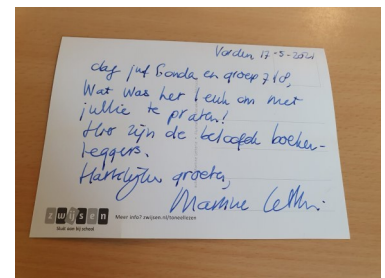 Vorden 17-5-2021
dag juf Gonda en groep 7/8,
Wat was het leuk om met
jullie te praten!
Hier zijn de beloofde boeken-
leggers.
Hartelijke groeten,
Martine
zwijsen
Sluit aan bij school
Meer info? zwijsen.nl/toneellezen